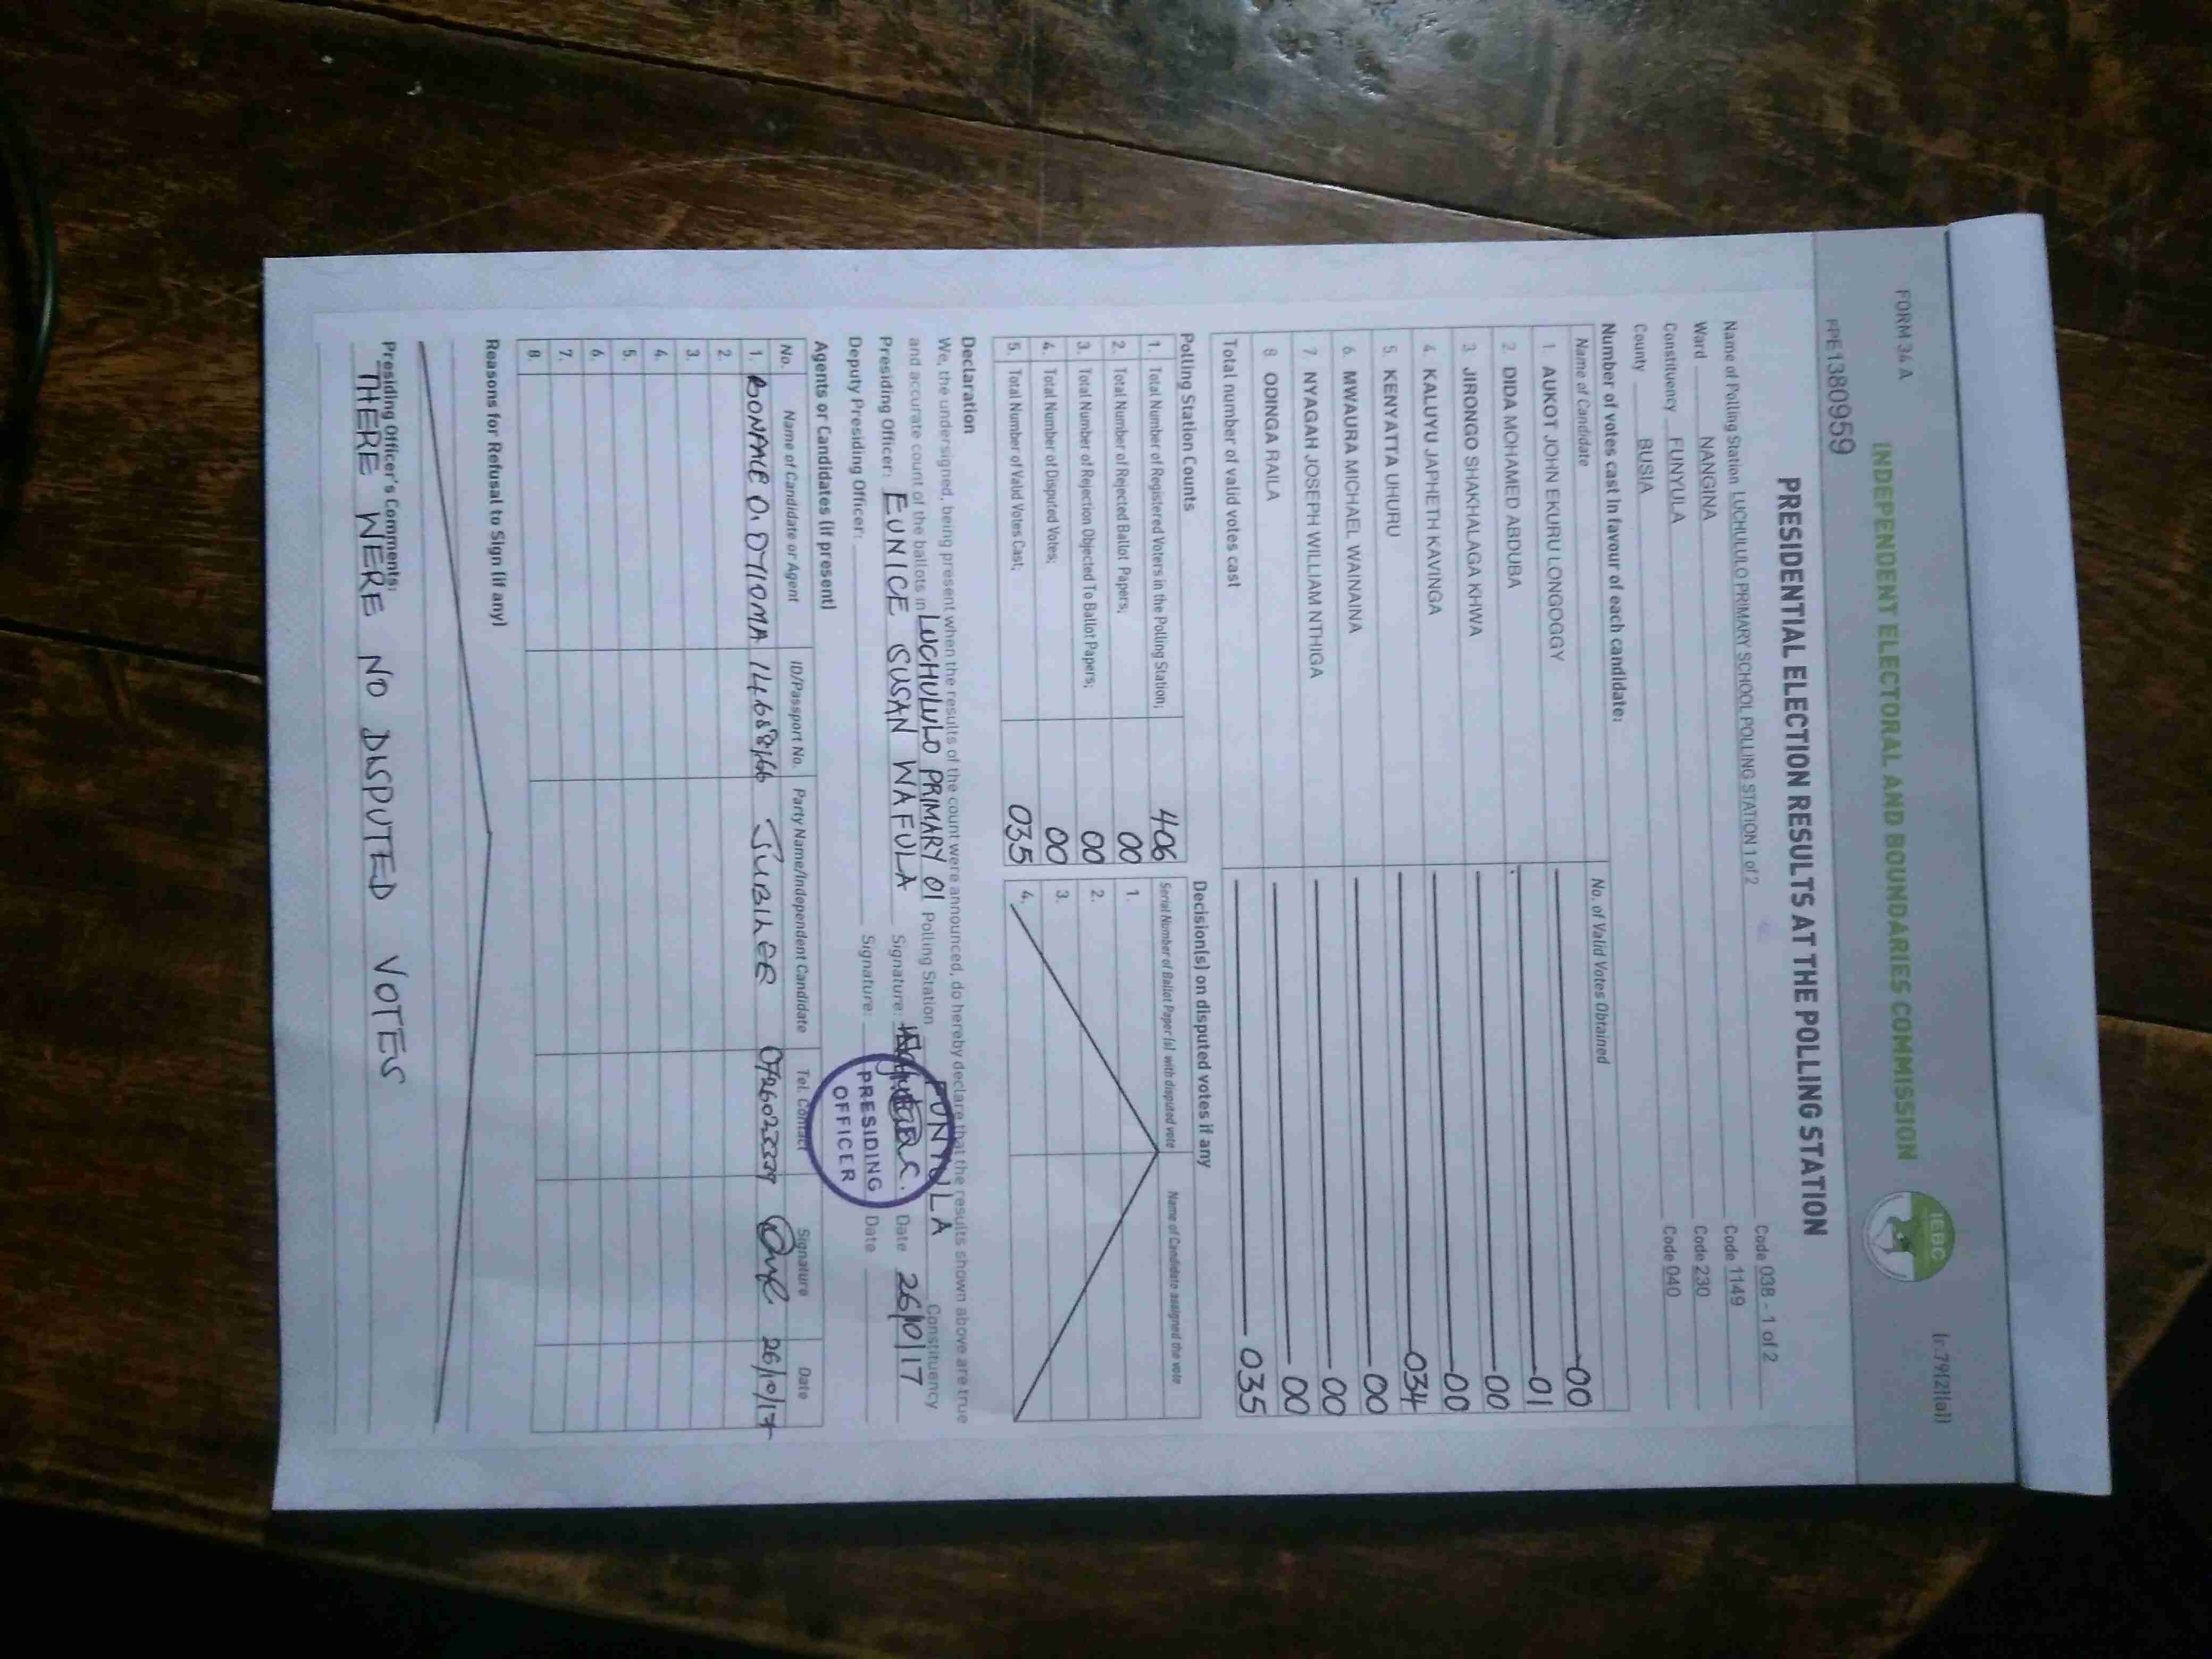 FORM 34 A (r.79(2)(a))
INDEPENDENT ELECTORAL AND BOUNDARIES COMMISSION
IEBC
PPE1380959
PRESIDENTIAL ELECTION RESULTS AT THE POLLING STATION
Name of Polling Station LUCHULULO PRIMARY SCHOOL POLLING STATION 1 of 2 Code 038 - 1 of 2
Ward NANGINA Code 1149
Constituency FUNYULA Code 230
County BUSIA Code 040
Number of votes cast in favour of each candidate:
Name of Candidate No. of Valid Votes Obtained
1. AUKOT JOHN EKURU LONGOGGY 00
2. DIDA MOHAMED ABDUBA 01
3. JIRONGO SHAKHALAGA KHWA 00
4. KALUYU JAPHETH KAVINGA 00
5. KENYATTA UHURU 034
6. MWAURA MICHAEL WAINAINA 00
7. NYAGAH JOSEPH WILLIAM NTHIGA 00
8. ODINGA RAILA 00
Total number of valid votes cast 035
Polling Station Counts
1. Total Number of Registered Voters in the Polling Station; 406
2. Total Number of Rejected Ballot Papers; 00
3. Total Number of Rejection Objected To Ballot Papers; 00
4. Total Number of Disputed Votes; 00
5. Total Number of Valid Votes Cast; 035
Decision(s) on disputed votes if any
Serial Number of Ballot Paper (s) with disputed vote Name of Candidate assigned the vote
1.
2.
3.
4.
Declaration
We, the undersigned, being present when the results of the count were announced, do hereby declare that the results shown above are true
and accurate count of the ballots in LUCHULULO PRIMARY 01 Polling Station FUNYULA Constituency
Presiding Officer: EUNICE SUSAN WAFULA Signature: Date 26/10/17
Deputy Presiding Officer: Signature: Date
PRESIDING
OFFICER
Agents or Candidates (if present)
No. Name of Candidate or Agent ID/Passport No. Party Name/Independent Candidate Tel. Contact Signature Date
1. JUBILEE 26/10/17
2.
3.
4.
5.
6.
7.
8.
Reasons for Refusal to Sign (if any)
Presiding Officer's Comments:
THERE WERE NO DISPUTED VOTES